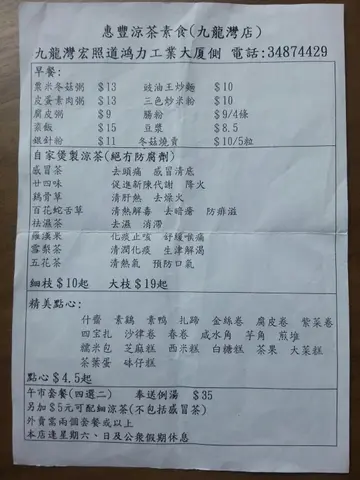 惠豐涼茶素食(九龍灣店)
九龍灣宏照道鴻力工業大廈側 電話:34874429
早餐:
粟米冬菇粥 $13 豉油王炒麵 $10
皮蛋素肉粥 $13 三色炒米粉 $10
腐皮粥 $9 腸粉 $9/4條
素飯 $15 豆漿 $8.5
銀針粉 $11 冬菇燒賣 $10/5粒
自家煲製涼茶(絕冇防腐劑)
感冒茶 去頭痛 感冒清底
廿四味 促進新陳代謝 降火
雞骨草 清肝熱 去燥火
百花蛇舌草 清熱解毒 去暗瘡 防痱滋
祛濕茶 去濕 消滯
羅漢果 化痰止咳 舒緩喉痛
雪梨茶 清潤化痰 生津解渴
五花茶 清熱氣 預防口氣
細枝 $10起 大枝 $19起
精美點心:
什齋 素鵝 素鴨 扎蹄 金絲卷 腐皮卷 紫菜卷
四宝扎 沙律卷 春卷 咸水角 芋角 煎堆
糯米包 芝麻糕 西米糕 白糖糕 茶果 大菜糕
茶葉蛋 砵仔糕
點心 $4.5起
午市套餐(四選二) 奉送例湯 $35
另加$5元可配細涼茶(不包括感冒茶)
外賣當兩個套餐或以上
本店逢星期六、日及公衆假期休息